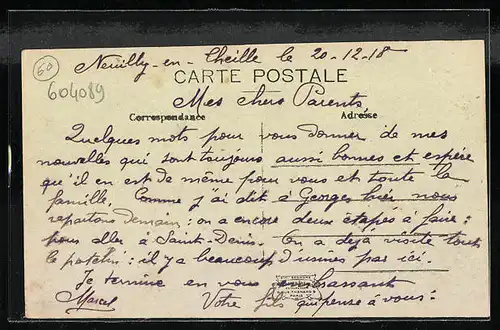 Neuilly-en-Theille le 20-12-18
60
CARTE POSTALE
604089
Mes chers Parents
Correspondance
Adresse
Quelques mots pour vous donner de mes
nouvelles qui sont toujours aussi bonnes et espère
qu'il en est de même pour vous et toute la
famille. Comme j'ai dit à Georges hier nous
repartons demain: on a encore deux étapes à faire:
pour aller à Saint-Denis. On a déjà visité tout
le patelin: il y a beaucoup d'usines par ici.
Je termine en vous embrassant
Marcel
Votre fils qui pense à vous: